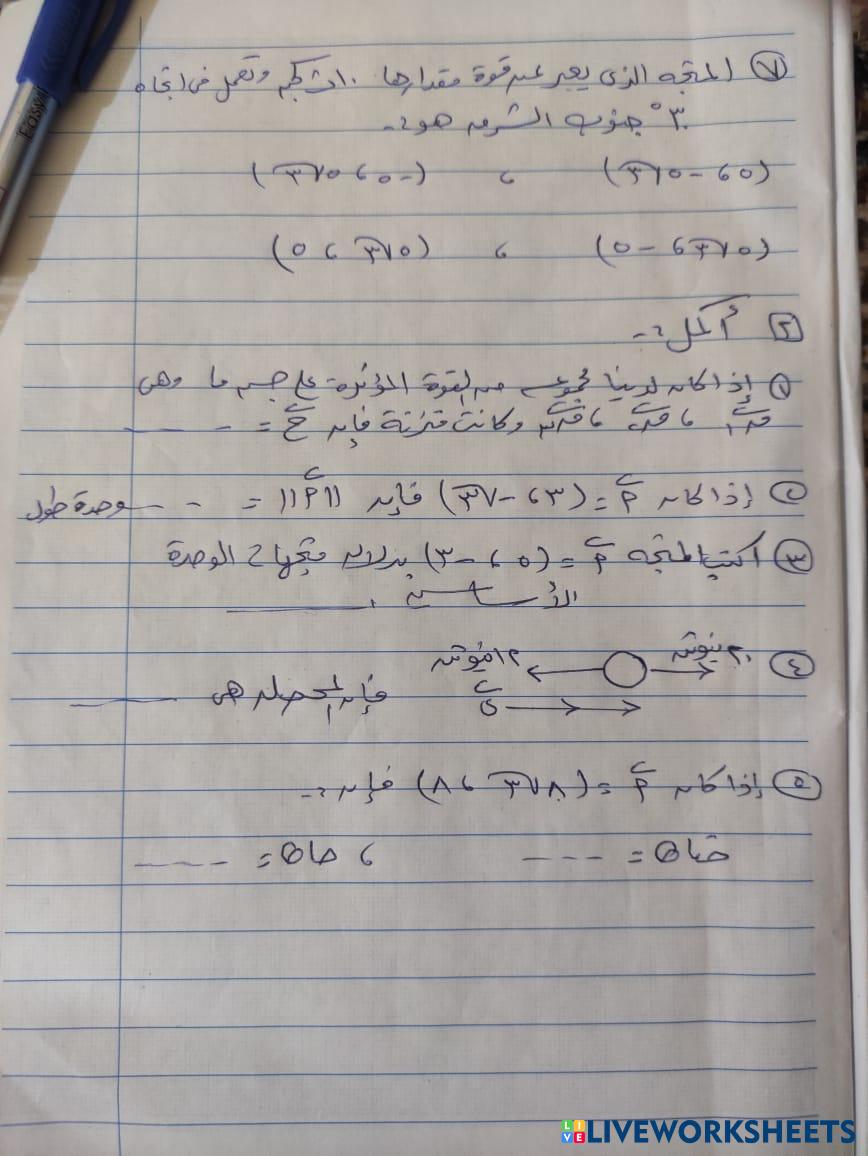 ٧ المتجه الذى يعبر عن قوة مقدارها ١٠ ث كجم وتعمل فى اتجاه
٣٠° جنوب الشرق هو :-
(٥ ، -٥√٣) ، (-٥ ، ٥√٣)
(٥√٣ ، -٥) ، (٥√٣ ، ٥)
٢ أكمل :-
١ إذا كان لدينا مجموعة من القوة المؤثرة على جسم ما وهى
ق١ ، ق٢ ، ق٣ وكانت متزنة فإن ح = ----
٢ إذا كان م = (٣ ، -√٣) فإن ||م|| = ---- وحدة طول
٣ اكتب المتجه م = (٥ ، -٣) بدلالة متجهات الوحدة
الأساسية ______
٤ ٢٠ نيوتن ١٢ نيوتن
ى فإن المحصلة هى ______
٥ إذا كان م = (٨√٣ ، ٨) فإن :-
حتا θ = ---- ، حا θ = ----
Easy
LIVEWORKSHEETS